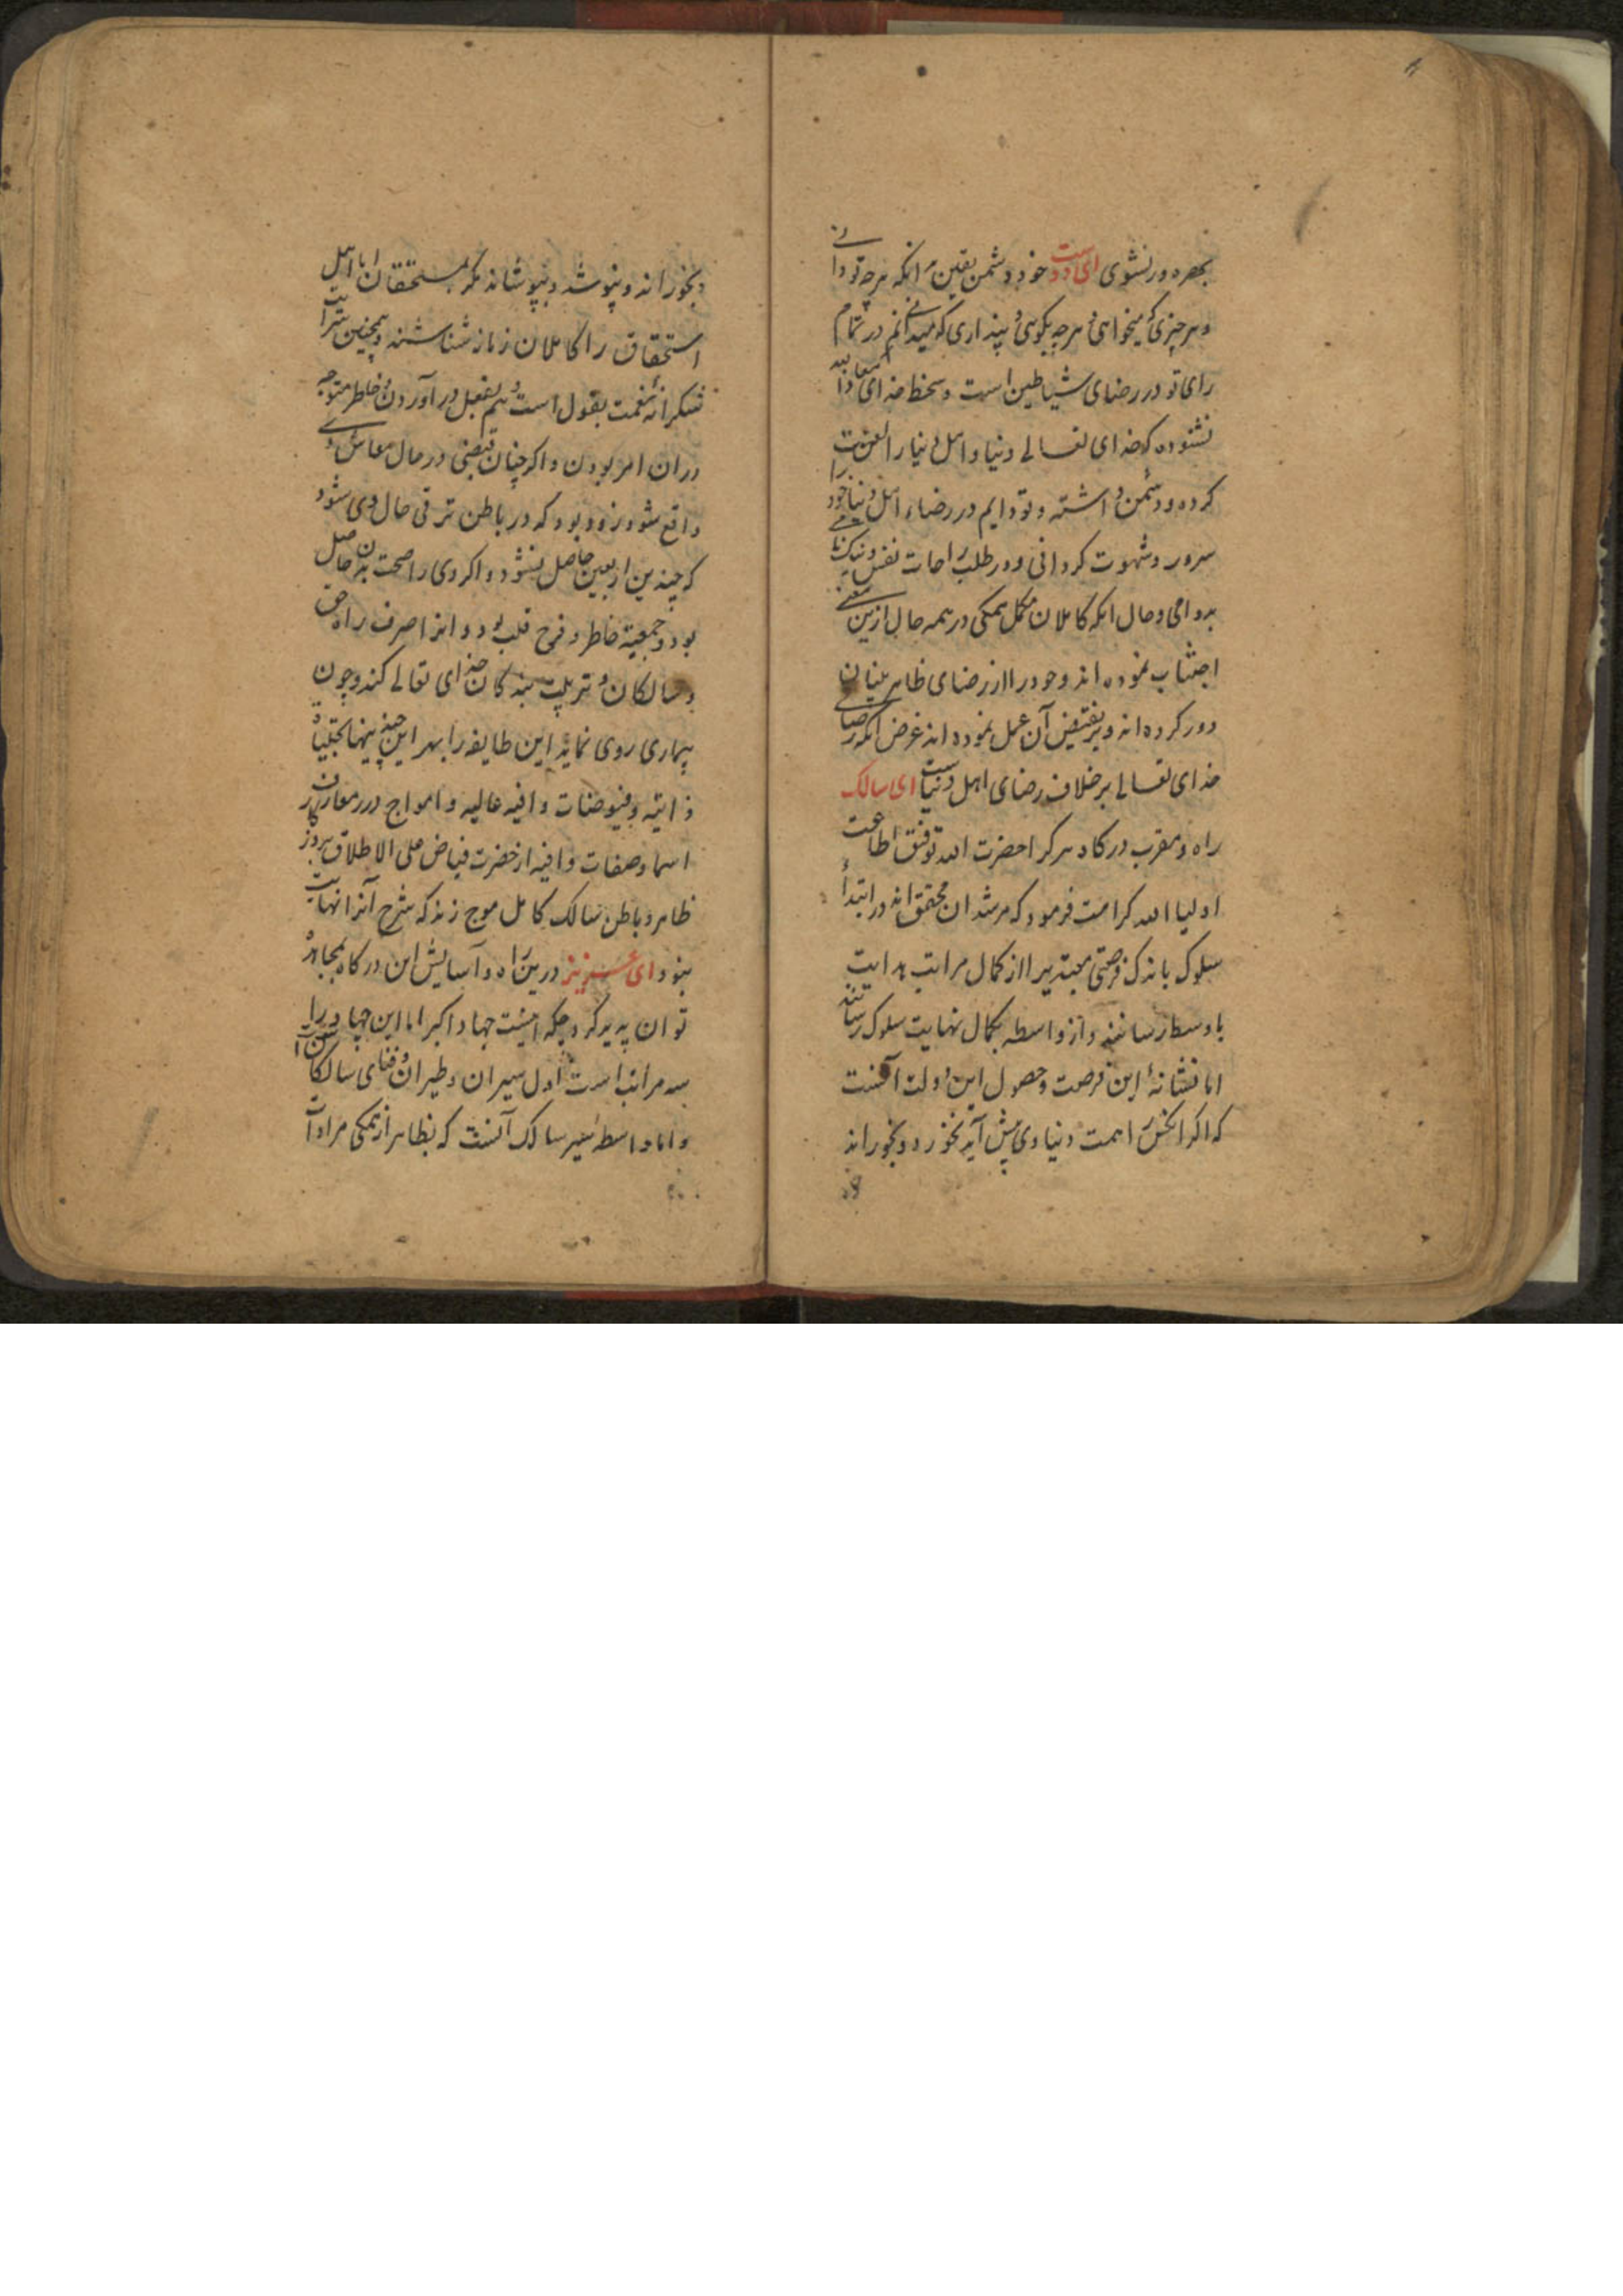 بهره ور نشوی ای دوست خود دشمن یقین آنکه هرچه تو دانی
و هر چیزی که میخواهی و هرچه بگویی و پنداری که میدانم در تمام
رای تو در رضای شیاطین است و سخط خدای
نشنوده که خدای تعالی دنیا و اهل دنیا را لعنت
کرده و دشمن داشته و تو دایم در رضاء اهل دنیا خود را
سرور و شهوت گردانی و در طلب راحات نفس و نیکنامی
بدوامی و حال آنکه کاملان مکمل همگی در همه حال ازین معنی
اجتناب نموده اند و خود را از رضای ظاهر بینان
دور کرده اند و بر نقیض آن عمل نموده اند غرض آنکه رضای
خدای تعالی بر خلاف رضای اهل دنیاست ای سالک
راه و مقرب درگاه هر کرا حضرت الله توفیق اطاعت
اولیا الله کرامت فرمود که مرشدان محقق اند در ابتدأ
سلوک باندک فرصتی مبتدیرا از کمال مراتب هدایت
باوسط رسانند و از واسطه بکمال نهایت سلوک رسانند
اما نشانهٔ این فرصت و حصول این دولت آنست
که اگر آنکس را همت دنیاوی پیش آید بخورد و بخوراند
و بخوراند و بپوشد و بپوشاند مگر بمستحقان اما اهل
استحقاق را کاملان زمان شناسند و همچنین مراتب
شکرانه نعمت بقول است و هم بفعل در آوردن و خاطر متوجه
در آن امر بودن و اگر چنان قبضی در حال معاش وی
واقع شود زود بود که در باطن ترقی حال وی شود
که چندین اربعین حاصل نشود و اگر وی را صحت بدن حاصل
بود و جمعیة خاطر و فرح قلب بود و آنرا صرف راه حق
و سالکان و تربیت بندگان خدای تعالی کند و چون
بیماری روی نماید این طایفه را بهر این چنینها تجلیات
ذاتیه و فیوضات وافیه عالیه و امواج درر معارف
اسما و صفات وافیه از حضرت فیاض علی الاطلاق بروز
ظاهر و باطن سالک کامل موج زند که شرح آنرا نهایت
نبود ای عزیز درین راه و آسایش این درگاه بمجاهده
توان پدید کرد چه که اینست جهاد اکبر اما این جهاد را
سه مراتب است اول سیران و طیران و فنای سالکان
و اما واسطه سیر سالک آنست که بظاهر از همگی مرادات